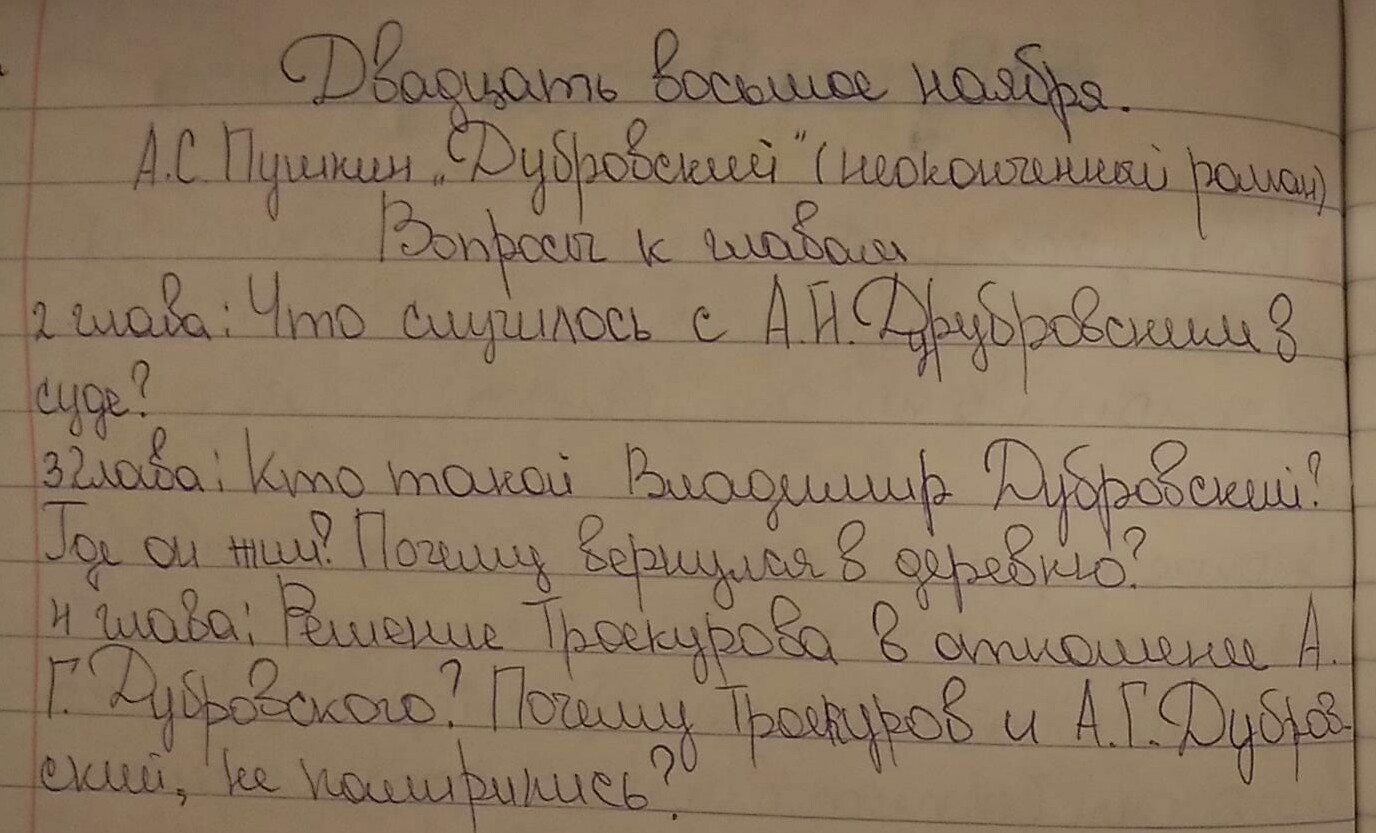 Двадцать восьмое ноября.
А.С. Пушкин „Дубровский" (неоконченный роман)
Вопросы к главам
2 глава: Что случилось с А.Н. Друбровским в
суде?
3 глава: Кто такой Владимир Дубровский?
Где он жил? Почему вернулся в деревню?
4 глава: Решение Троекурова в отношение А.
Г. Дубровского? Почему Троекуров и А.Г. Дубров-
ский, не помирились?